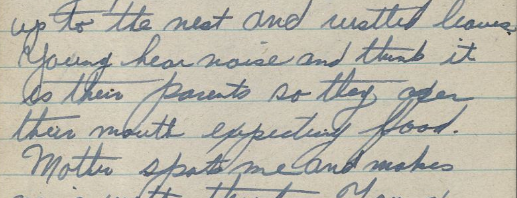 up to the nest and rustled leaves.
Young hear noise and think it
is their parents so they open
their mouth expecting food.
Mother spots me and makes